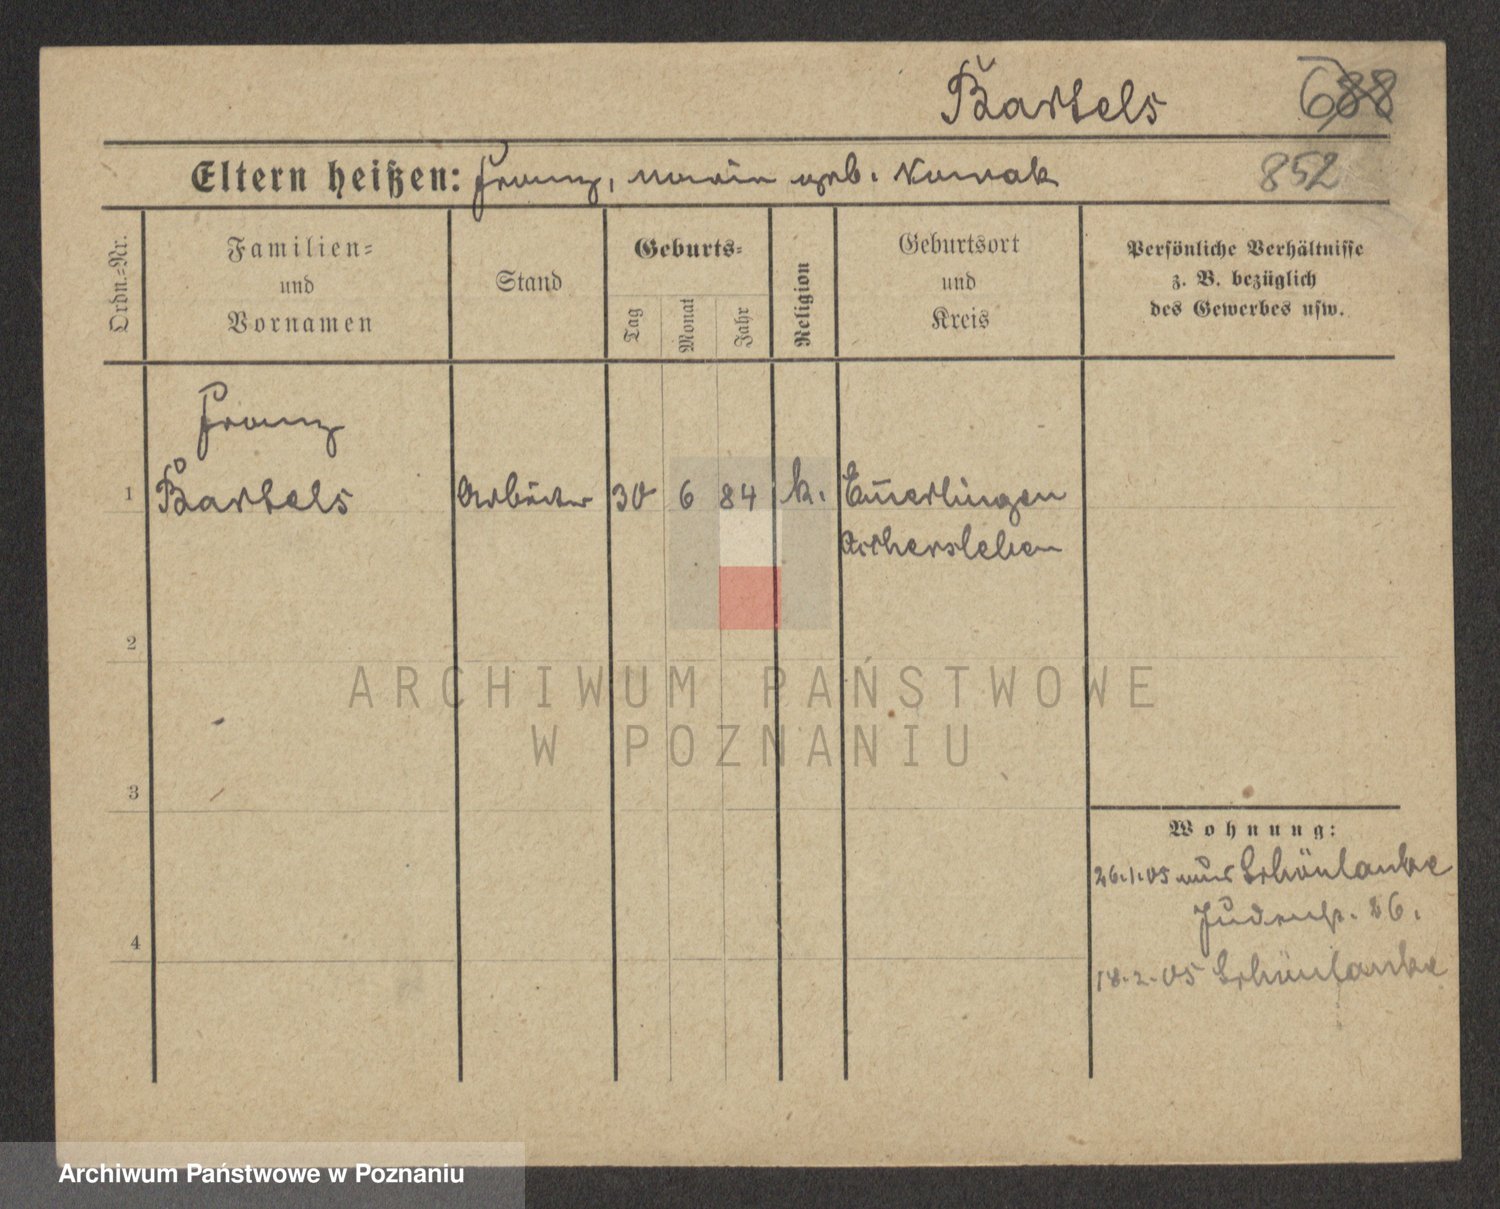 Bartels 688
Eltern heißen: Franz, Marie geb. Nowak 852
Ordn.-Nr.
Familien-
und
Vornamen
Stand
Geburts-
Tag
Monat
Jahr
Religion
Geburtsort
und
Kreis
Persönliche Verhältnisse
z. B. bezüglich
des Gewerbes usw.
Franz
1 Bartels Arbeiter 30 6 84 k. Ermerlingen
Aschersleben
2
ARCHIWUM PAŃSTWOWE
W POZNANIU
3
Wohnung:
26.1.05 aus Schönlanke
Judenstr. 26.
4
18.2.05 Schönlanke
Archiwum Państwowe w Poznaniu